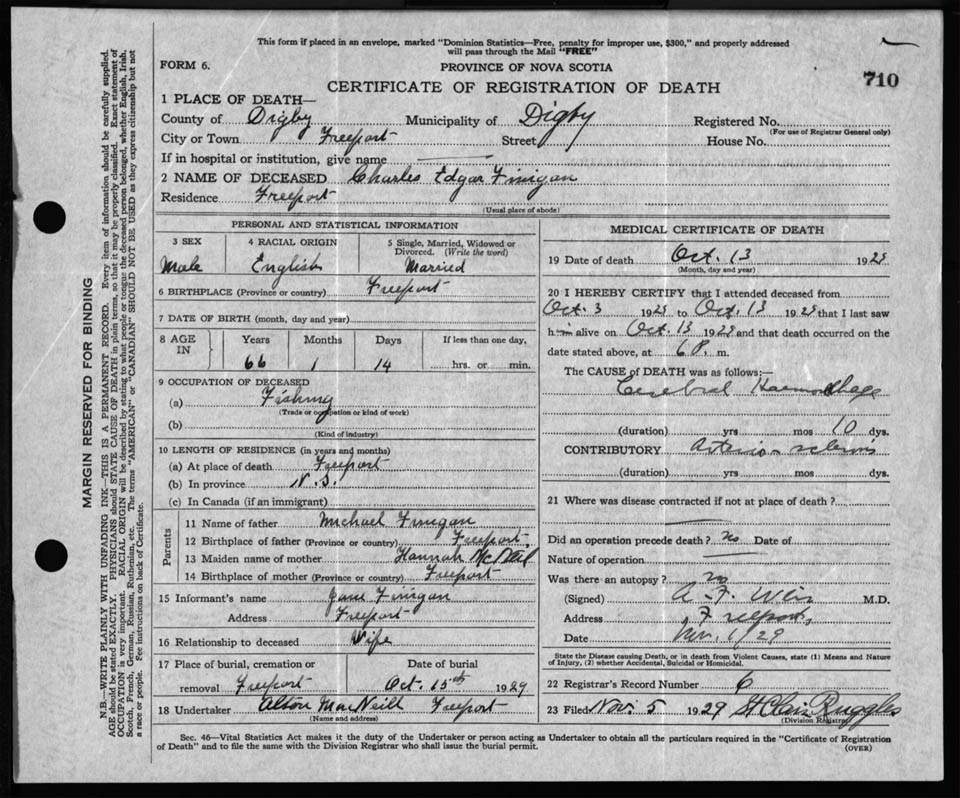 This form if placed in an envelope, marked "Dominion Statistics—Free, penalty for improper use, $300," and properly addressed
will pass through the Mail "FREE"
FORM 6.
PROVINCE OF NOVA SCOTIA
710
CERTIFICATE OF REGISTRATION OF DEATH
1 PLACE OF DEATH—
County of Digby Municipality of Digby Registered No.
(For use of Registrar General only)
City or Town Freeport Street House No.
If in hospital or institution, give name
2 NAME OF DECEASED Charles Edgar Finigan
Residence Freeport
(Usual place of abode)
PERSONAL AND STATISTICAL INFORMATION
3 SEX 4 RACIAL ORIGIN 5 Single, Married, Widowed or
Divorced. (Write the word)
Male English Married
6 BIRTHPLACE (Province or country) Freeport
7 DATE OF BIRTH (month, day and year)
8 AGE IN Years Months Days If less than one day,
66 1 14 hrs. or min.
9 OCCUPATION OF DECEASED
(a) Fishing
(Trade or occupation or kind of work)
(b)
(Kind of industry)
10 LENGTH OF RESIDENCE (in years and months)
(a) At place of death Freeport
(b) In province N.S.
(c) In Canada (if an immigrant)
Parents
11 Name of father Michael Finigan
12 Birthplace of father (Province or country) Freeport,
13 Maiden name of mother Hannah McNeil
14 Birthplace of mother (Province or country) Freeport
15 Informant's name Jane Finigan
Address Freeport
16 Relationship to deceased Wife
17 Place of burial, cremation or Date of burial
removal Freeport Oct. 15th 1929
18 Undertaker Alton MacNeill Freeport
(Name and address)
MEDICAL CERTIFICATE OF DEATH
19 Date of death Oct. 13 1929
(Month, day and year)
20 I HEREBY CERTIFY that I attended deceased from
Oct. 3 1929 to Oct. 13 1929 that I last saw
him alive on Oct. 13 1929 and that death occurred on the
date stated above, at 6 P. m.
The CAUSE OF DEATH was as follows:—
Cerebral Haemorrhage
(duration) yrs mos 10 dys.
CONTRIBUTORY Arterio-sclerosis
(duration) yrs mos dys.
21 Where was disease contracted if not at place of death?
Did an operation precede death? no Date of
Nature of operation
Was there an autopsy? no
(Signed) A. F. Weir M.D.
Address Freeport,
Date Nov. 1/29
State the Disease causing Death, or in death from Violent Causes, state (1) Means and Nature
of Injury, (2) whether Accidental, Suicidal or Homicidal.
22 Registrar's Record Number 6
23 Filed Nov. 5 1929 St Clair Ruggles
(Division Registrar)
Sec. 46—Vital Statistics Act makes it the duty of the Undertaker or person acting as Undertaker to obtain all the particulars required in the "Certificate of Registration
of Death" and to file the same with the Division Registrar who shall issue the burial permit.
(OVER)
MARGIN RESERVED FOR BINDING
N.B.—WRITE PLAINLY WITH UNFADING INK—THIS IS A PERMANENT RECORD. Every item of information should be carefully supplied.
AGE should be stated EXACTLY. PHYSICIANS should STATE CAUSE OF DEATH in plain terms, so that it may be properly classified. Exact statement of
OCCUPATION is very important. RACIAL ORIGIN will be described by stating to what people or tongue the deceased person belonged, whether English, Irish,
Scotch, French, German, Russian, Ruthenian, etc. The terms "AMERICAN" or "CANADIAN" SHOULD NOT BE USED as they express citizenship but not
a race or people. See instructions on back of Certificate.